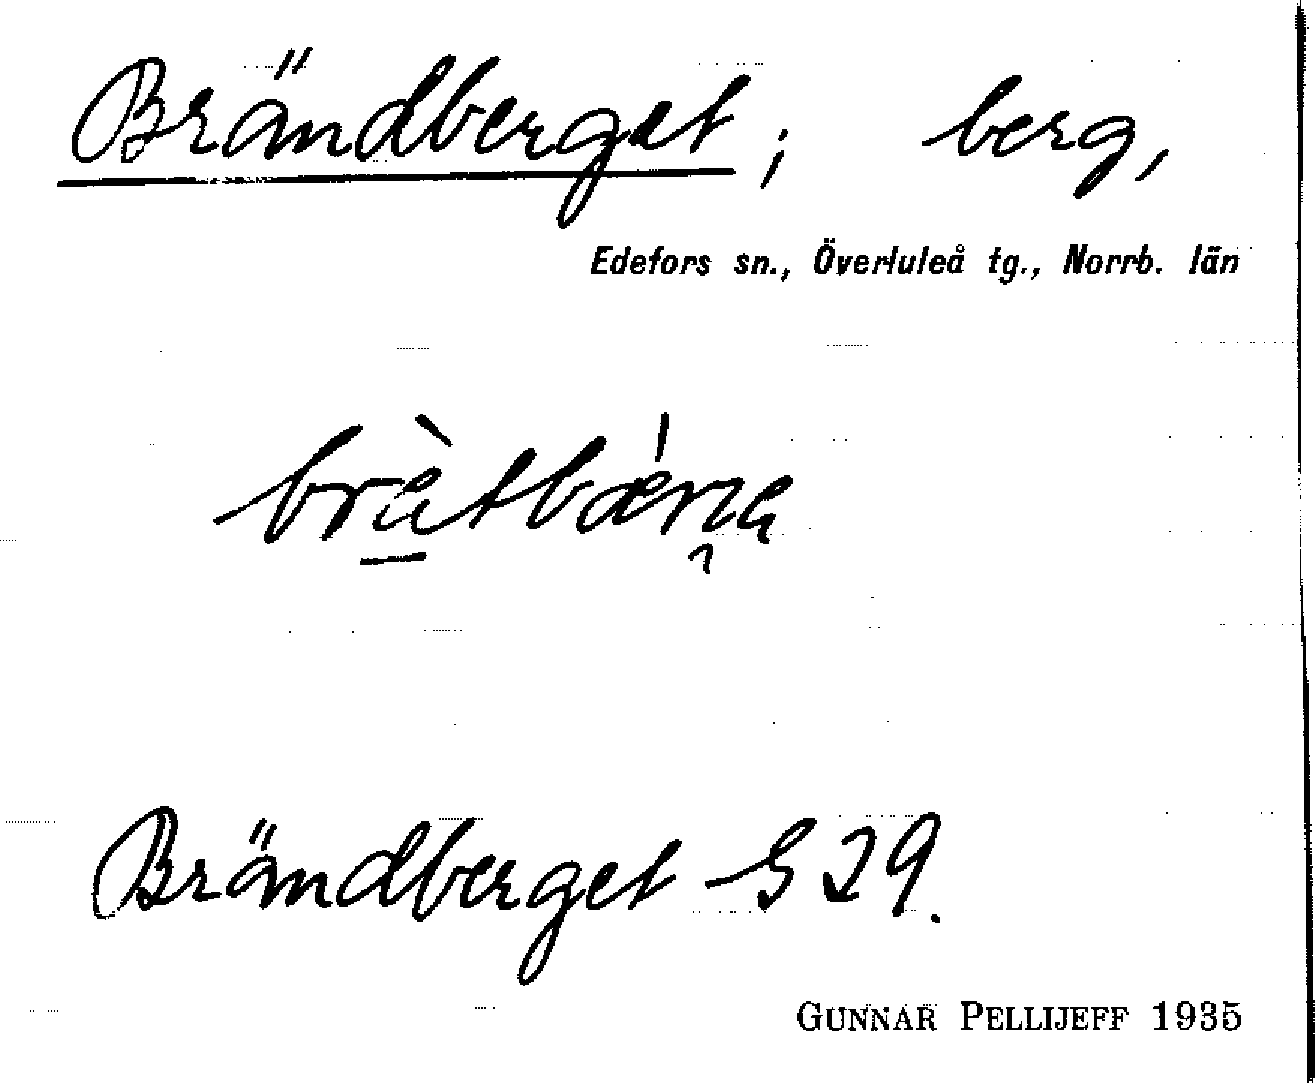 Brändberget; berg,
Edefors sn., Överluleå tg., Norrb. län
Brändberget S 29.
GUNNAR PELLIJEFF 1935